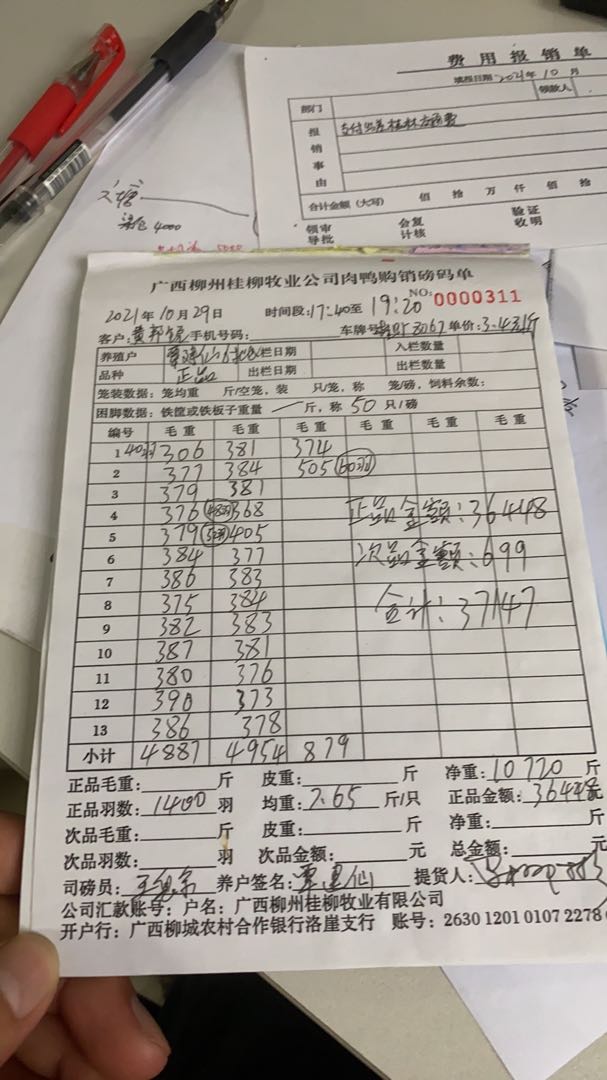 费用报销单
填报日期 2021年10月
领款人
部门
报销事由
合计金额（大写） 佰 拾 万 仟 佰 拾
领导 审批 会计 复核 证明 验收
梁色 4000
广西柳州桂柳牧业公司肉鸭购销磅码单
NO: 0000311
2021年10月29日 时间段:17:40至19:20
客户: 手机号码: 车牌号 单价:
养殖户 入栏日期 入栏数量
品种 正品 出栏日期 出栏数量
笼装数据: 笼均重 斤/空笼, 装 只/笼, 称 笼/磅, 饲料余数:
困脚数据: 铁筐或铁板子重量 一 斤, 称 50 只/磅
编号 毛重 毛重 毛重 毛重 毛重 毛重
1 306 381 374
2 377 384 505
3 379 381
4 376 368 正品金额:36448
5 379 405
6 384 377 次品金额:699
7 386 383
8 375 384 合计:37147
9 382 383
10 387 381
11 380 376
12 390 373
13 386 378
小计 4887 4954 879
正品毛重: 斤 皮重: 斤 净重:10720 斤
正品羽数:1400 羽 均重:2.65 斤/只 正品金额:36448元
次品毛重: 斤 皮重: 斤 净重: 斤
次品羽数: 羽 次品金额: 元 总金额: 元
司磅员: 养户签名: 提货人:
公司汇款账号: 户名: 广西柳州桂柳牧业有限公司
开户行: 广西柳城农村合作银行洛崖支行 账号: 2630 1201 0107 2278